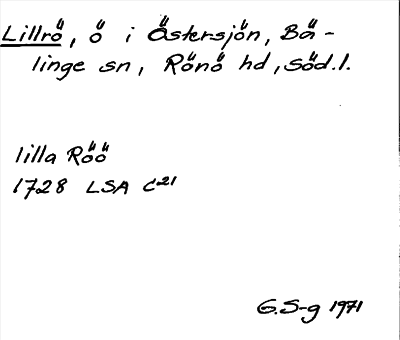 Lillrö, ö i Östersjön, Bä-
linge sn, Rönö hd, Söd.l.
lilla Röö
1728 LSA C21
G.S-g 1971